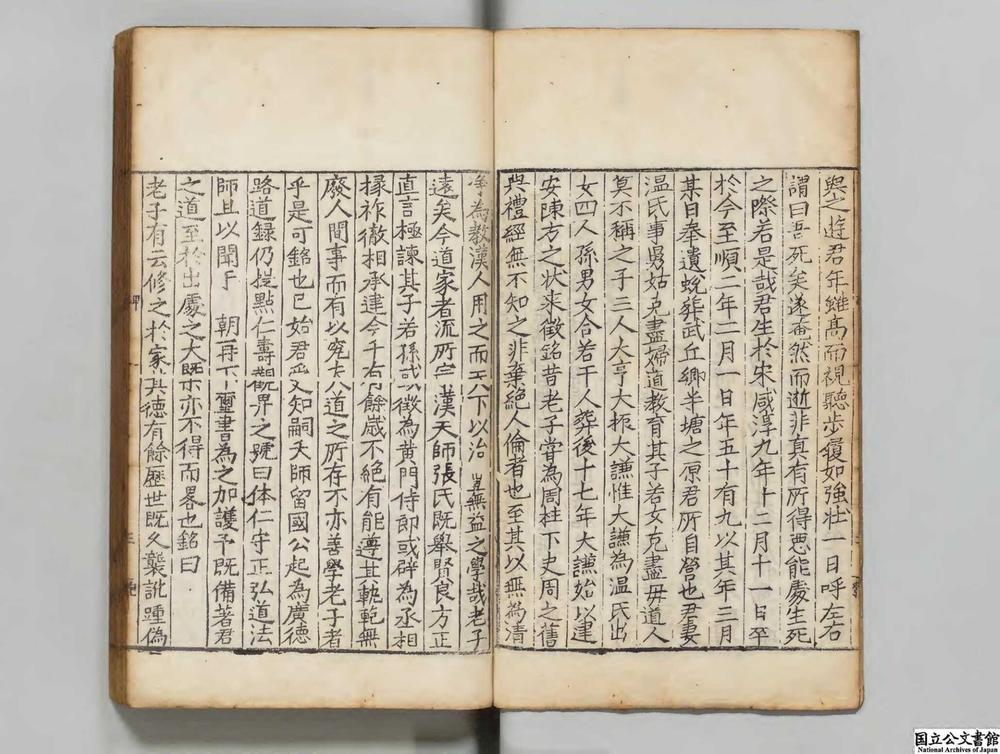 與之遊君年雖高而視聽步履如強壯一日呼左右
謂曰吾死矣遂奄然而逝非真有所得惡能處生死
之際若是哉君生於宋咸淳九年十二月十一日卒
於今至順二年二月一日年五十有九以其年三月
某日奉遺蛻葬武丘鄉半塘之原君所自營也君妻
溫氏事舅姑克盡婦道教育其子若女克盡母道人
莫不稱之子三人大亨大振大謙惟大謙為溫氏出
女四人孫男女合若干人葬後十七年大謙始以建
安陳方之状来徵銘昔老子甞為周柱下史周之舊
典禮經無不知之非棄絕人倫者也至其以無為清
淨為教漢人用之而天下以治 豈無益之學哉老子
遠矣今道家者流所宗 漢天師張氏既舉賢良方正
直言極諫其子若孫或徵為黃門侍郎或辟為丞相
掾祚徹相承逮今千有餘歲不絕有能遵其軌範無
廢人間事而有以究夫道之所存不亦善學老子者
乎是可銘也已始君 受知嗣天師留國公起為廣德
路道録仍提點仁壽觀界之號曰体仁守正弘道法
師且以聞于 朝再下璽書為之加護予既備著君
之道至於出處之大既亦不得而畧也銘曰
老子有云修之於家其德有餘歷世既久襲訛踵偽